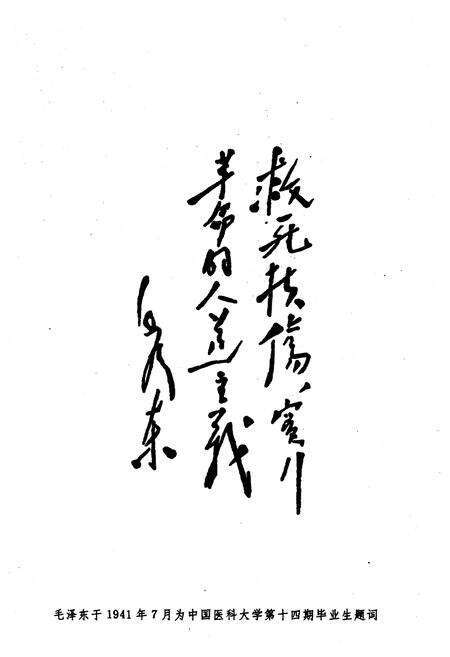 救死扶傷，實行
革命的人道主義
毛泽东
毛泽东于1941年7月为中国医科大学第十四期毕业生题词